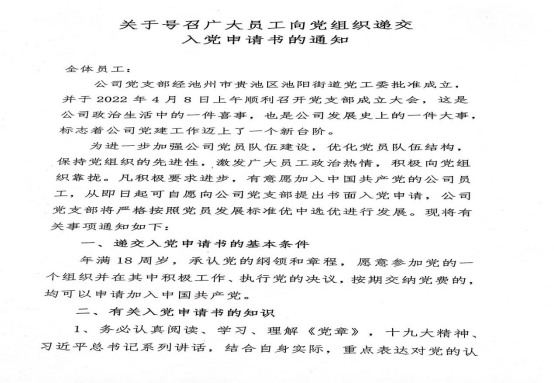 关于号召广大员工向党组织递交
入党申请书的通知
全体员工：
公司党支部经池州市贵池区池阳街道党工委批准成立，
并于 2022 年 4 月 8 日上午顺利召开党支部成立大会，这是
公司政治生活中的一件喜事，也是公司发展史上的一件大事，
标志着公司党建工作迈上了一个新台阶。
为进一步加强公司党员队伍建设，优化党员队伍结构，
保持党组织的先进性，激发广大员工政治热情，积极向党组
织靠拢。凡积极要求进步，有意愿加入中国共产党的公司员
工，从即日起可自愿向公司党支部提出书面入党申请，公司
党支部将严格按照党员发展标准优中选优进行发展。现将有
关事项通知如下：
一、递交入党申请书的基本条件
年满 18 周岁，承认党的纲领和章程，愿意参加党的一
个组织并在其中积极工作、执行党的决议，按期交纳党费的，
均可以申请加入中国共产党。
二、有关入党申请书的知识
1、务必认真阅读、学习、理解《党章》，十九大精神、
习近平总书记系列讲话，结合自身实际，重点表达对党的认